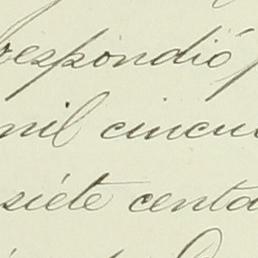 respondió
mil cincu
siéte centa